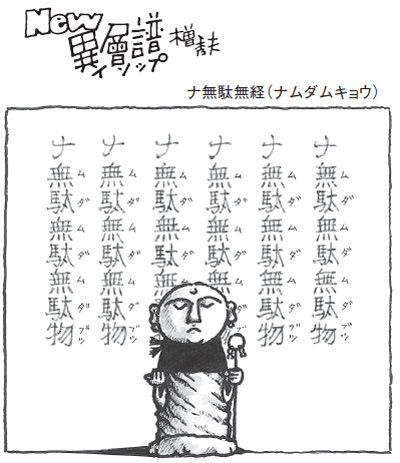 New
異層譜
イソップ
ナ無駄無経(ナムダムキョウ)
ナ無駄無駄無駄物
ムダムダムダブツ
ナ無駄無駄無駄物
ムダムダムダブツ
ナ無駄無駄無
ムダムダム
ナ無駄無駄無
ムダムダム
ナ無駄無駄無駄物
ムダムダムダブツ
ナ無駄無駄無駄物
ムダムダムダブツ